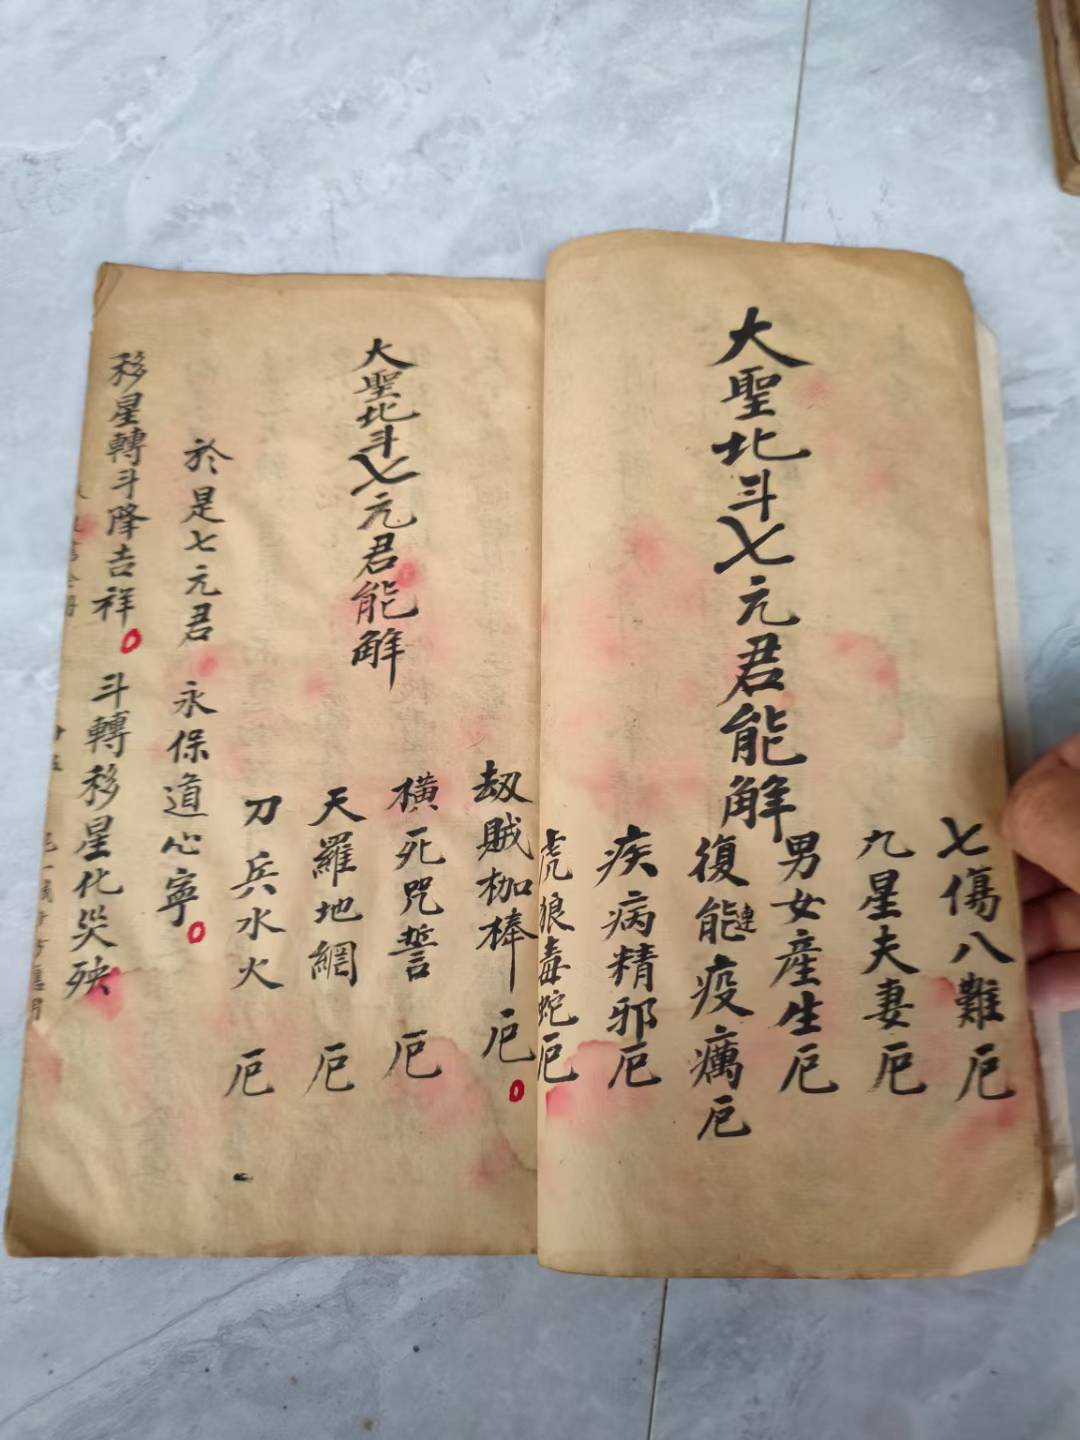 大聖北斗七元君能解
七傷八難厄
九星夫妻厄
男女產生厄
復能連疫癘厄
疾病精邪厄
虎狼毒蛇厄
大聖北斗七元君能解
劫賊枷棒厄
橫死咒誓厄
天羅地網厄
刀兵水火厄
於是七元君 永保道心寧
移星轉斗降吉祥 斗轉移星化災殃